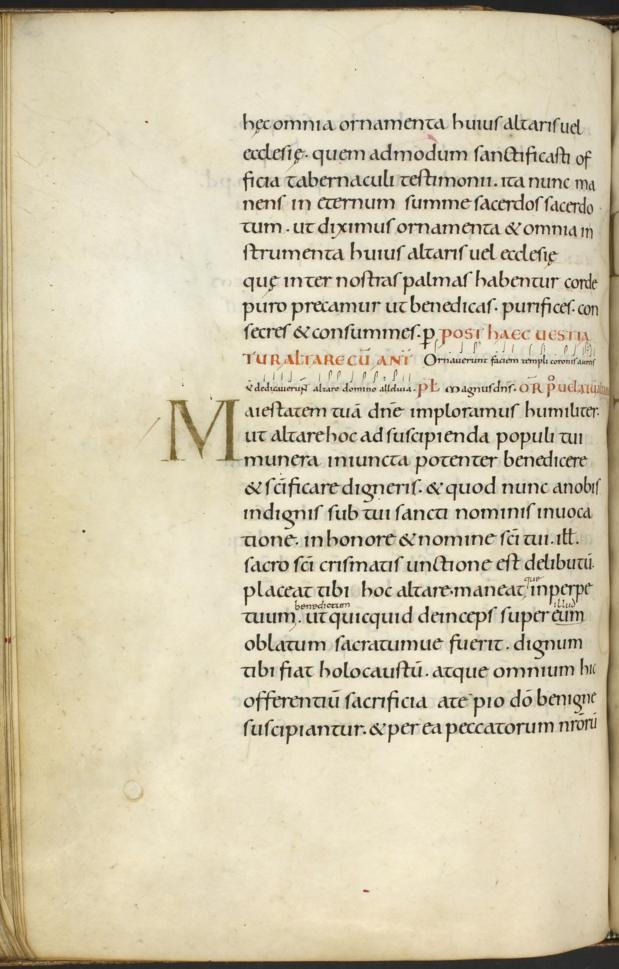 hęc omnia ornamenta huius altaris uel
ecclesię. quem admodum sanctificasti of
ficia tabernaculi testimonii. ita nunc ma
nens in eternum summe sacerdos sacerdo
tum. ut diximus ornamenta & omnia in
strumenta huius altaris uel ecclesię
quę inter nostras palmas habentur corde
puro precamur ut benedicas. purifices. con
secres & consummes. p̱ POST HAEC UESTIA
TUR ALTARE CŪ ANT Ornauerunt faciem templi coronis aureis
& dedicauerunt altare domino alleluia. ps̄ Magnus dn̄s. OR
Maiestatem tuā dn̄e imploramus humiliter.
ut altare hoc ad suscipienda populi tui
munera iniuncta potenter benedicere
& sc̄ificare digneris. & quod nunc anobis
indignis sub tui sancti nominis inuoca
tione. in honore & nomine sc̄i tui. ill̄.
sacro sc̄i crismatis unctione est delibutū.
placeat tibi hoc altare. maneat que inperpe
tuum. benedictum ut quicquid deinceps super eum illud
oblatum sacratumue fuerit. dignum
tibi fiat holocaustū. atque omnium hic
offerentiū sacrificia ate pio dō benigne
suscipiantur. & per ea peccatorum nr̄orū